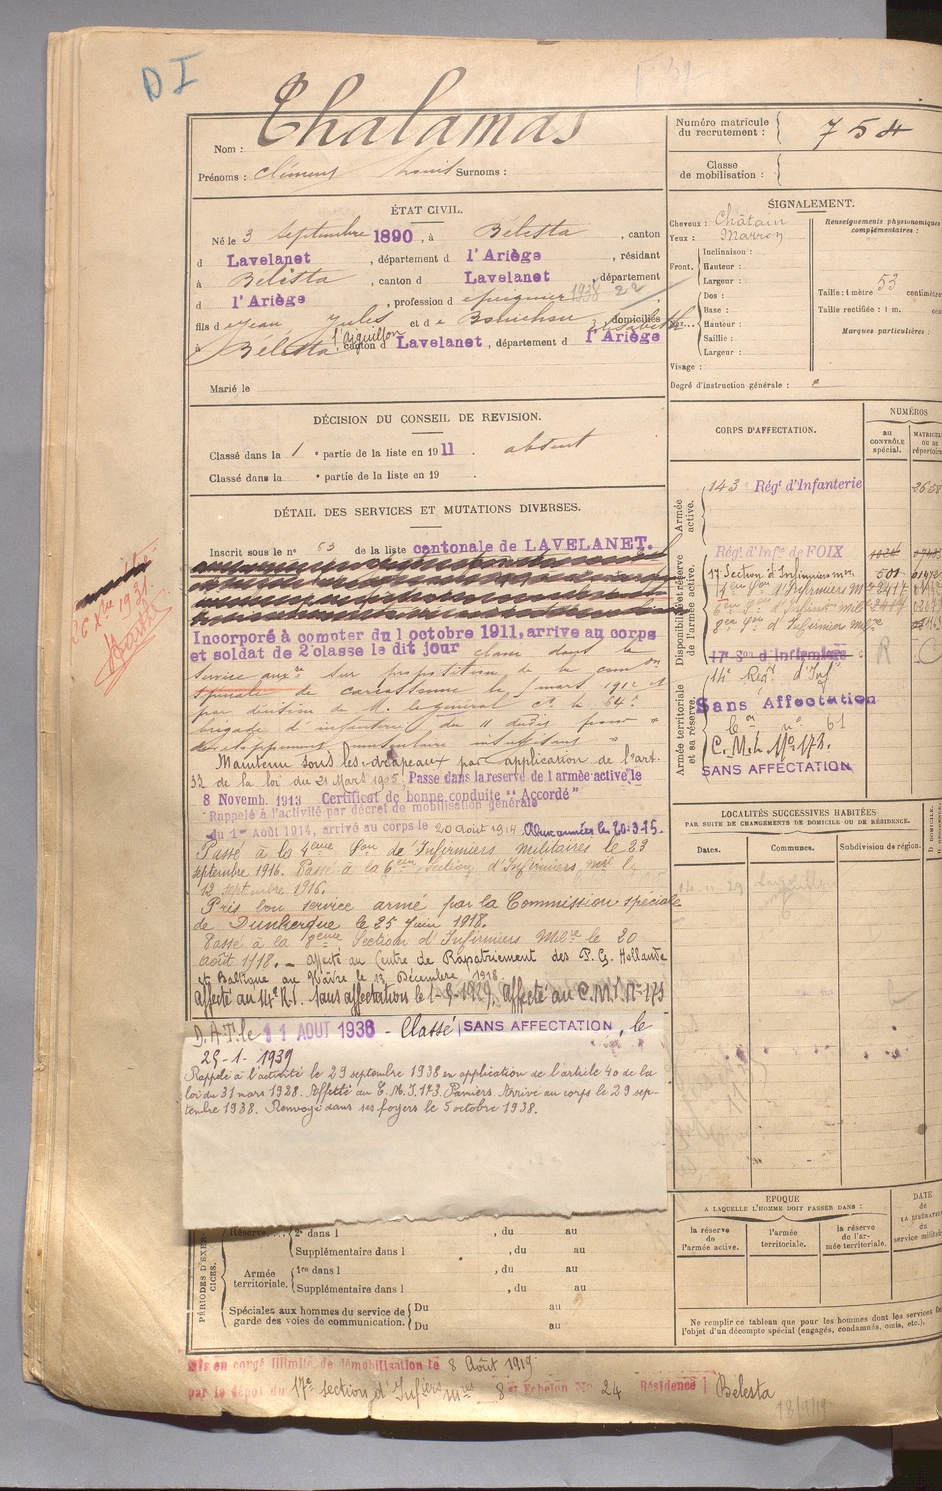 D I
Nom : Chalamas
Prénoms : Clément Louis Surnoms :
ÉTAT CIVIL.
Né le 3 septembre 1890, à Bélesta, canton
d Lavelanet, département d l'Ariège, résidant
à Bélesta, canton d Lavelanet, département
d l'Ariège, profession d 1938 22
fils d e Jean, Jules et d e domiciliés
l'Aiguillon
à Bélesta canton d Lavelanet, département d l'Ariège
Marié le
DÉCISION DU CONSEIL DE REVISION.
Classé dans la 1 e partie de la liste en 1911. absent
Classé dans la e partie de la liste en 19 .
DÉTAIL DES SERVICES ET MUTATIONS DIVERSES.
Inscrit sous le n° 53 de la liste cantonale de LAVELANET.
Incorporé à compter du 1 octobre 1911, arrive au corps
et soldat de 2e classe le dit jour classé dans le
service auxre sur proposition de la comon
spéciale de carcassonne le mars 1912 et
par décision de M. le général Ct la 64e
brigade d'infanterie du 11 dudit pour "
développement musculaire insuffisant "
Maintenu sous les drapeaux par application de l'art.
33 de la loi du 21 Mars 1905, Passé dans la reserve de l'armée active le
8 Novemb. 1913 Certificat de bonne conduite "Accordé"
Rappelé à l'activité par décret de mobilisation générale
du 1er Août 1914, arrivé au corps le 20 août 1914 Aux armées le 20.3.15.
Passé à la 4eme Son de Infirmiers militaires le 23
septembre 1916. Passé à la 6eme Section d'Infirmiers mil le
12 septembre 1916.
Pris bon service armé par la Commission spéciale
de Dunkerque le 25 juin 1918.
Passé à la 8eme Section d'Infirmiers Milre le 20
Août 1918. – Affecté au Centre de Rapatriement des P.G. Hollande
et Baltique au Hâvre le 13 Décembre 1918.
Affecté au 14e R.I. Sans affectation le 1-5-1929. Affecté au C.M.I. N° 173
D.A.T. le 11 AOUT 1938 – Classé SANS AFFECTATION, le
25-1-1939
Rappelé à l'activité le 29 septembre 1938 en application de l'article 40 de la
loi du 31 mars 1928. Affecté au C.M.I. 173. Pamiers. Arrivé au corps le 29 sep-
tembre 1938. Renvoyé dans ses foyers le 5 octobre 1938.
PÉRIODES D'EXERCICES.
Réserve.... 2e dans l , du au
Supplémentaire dans l , du au
Armée territoriale. 1re dans l , du au
Supplémentaire dans l , du au
Spéciales aux hommes du service de garde des voies de communication. Du au
Du au
Mis en congé illimité de démobilisation le 8 Août 1919
par le dépôt du 17e section d'Infiers mres 8e Echelon N° 24 Résidence Belesta
18/9/19
Numéro matricule
du recrutement : 754
Classe
de mobilisation :
SIGNALEMENT.
Cheveux : Châtain
Yeux : Marron
Front. Inclinaison :
Hauteur :
Largeur :
Nez... Dos :
Base :
Hauteur :
Saillie :
Largeur :
Visage :
Renseignements physionomiques
complémentaires :
Taille : 1 mètre 53 centimètres
Taille rectifiée : 1 m. cen
Marques particulières :
Degré d'instruction générale :
CORPS D'AFFECTATION.
NUMÉROS
au
CONTRÔLE
spécial.
MATRICULE
OU DE
répertoire
Armée active.
143 Régt d'Infanterie 2658
Disponibilité et réserve de l'armée active.
Régt d'Infie de FOIX
17e Section d'Infirmiers mres 501
4eme Son d'Infirmiers Mre 2417
6eme Son d'Infirm mil
8eme Son d'Infirmiers Milre
17e Son d'Infirmiers R
Armée territoriale et sa réserve.
14e Régt d'Inf
Sans Affectation
n° 61
C.M.I. N° 173.
SANS AFFECTATION
LOCALITÉS SUCCESSIVES HABITÉES
PAR SUITE DE CHANGEMENTS DE DOMICILE OU DE RÉSIDENCE.
Dates. Communes. Subdivision de région.
EPOQUE
A LAQUELLE L'HOMME DOIT PASSER DANS :
la réserve
de
l'armée active.
l'armée
territoriale.
la réserve
de l'ar-
mée territoriale.
DATE
de
LA LIBÉRATION
du
service militaire
Ne remplir ce tableau que pour les hommes dont les services
l'objet d'un décompte spécial (engagés, condamnés, omis, etc.).